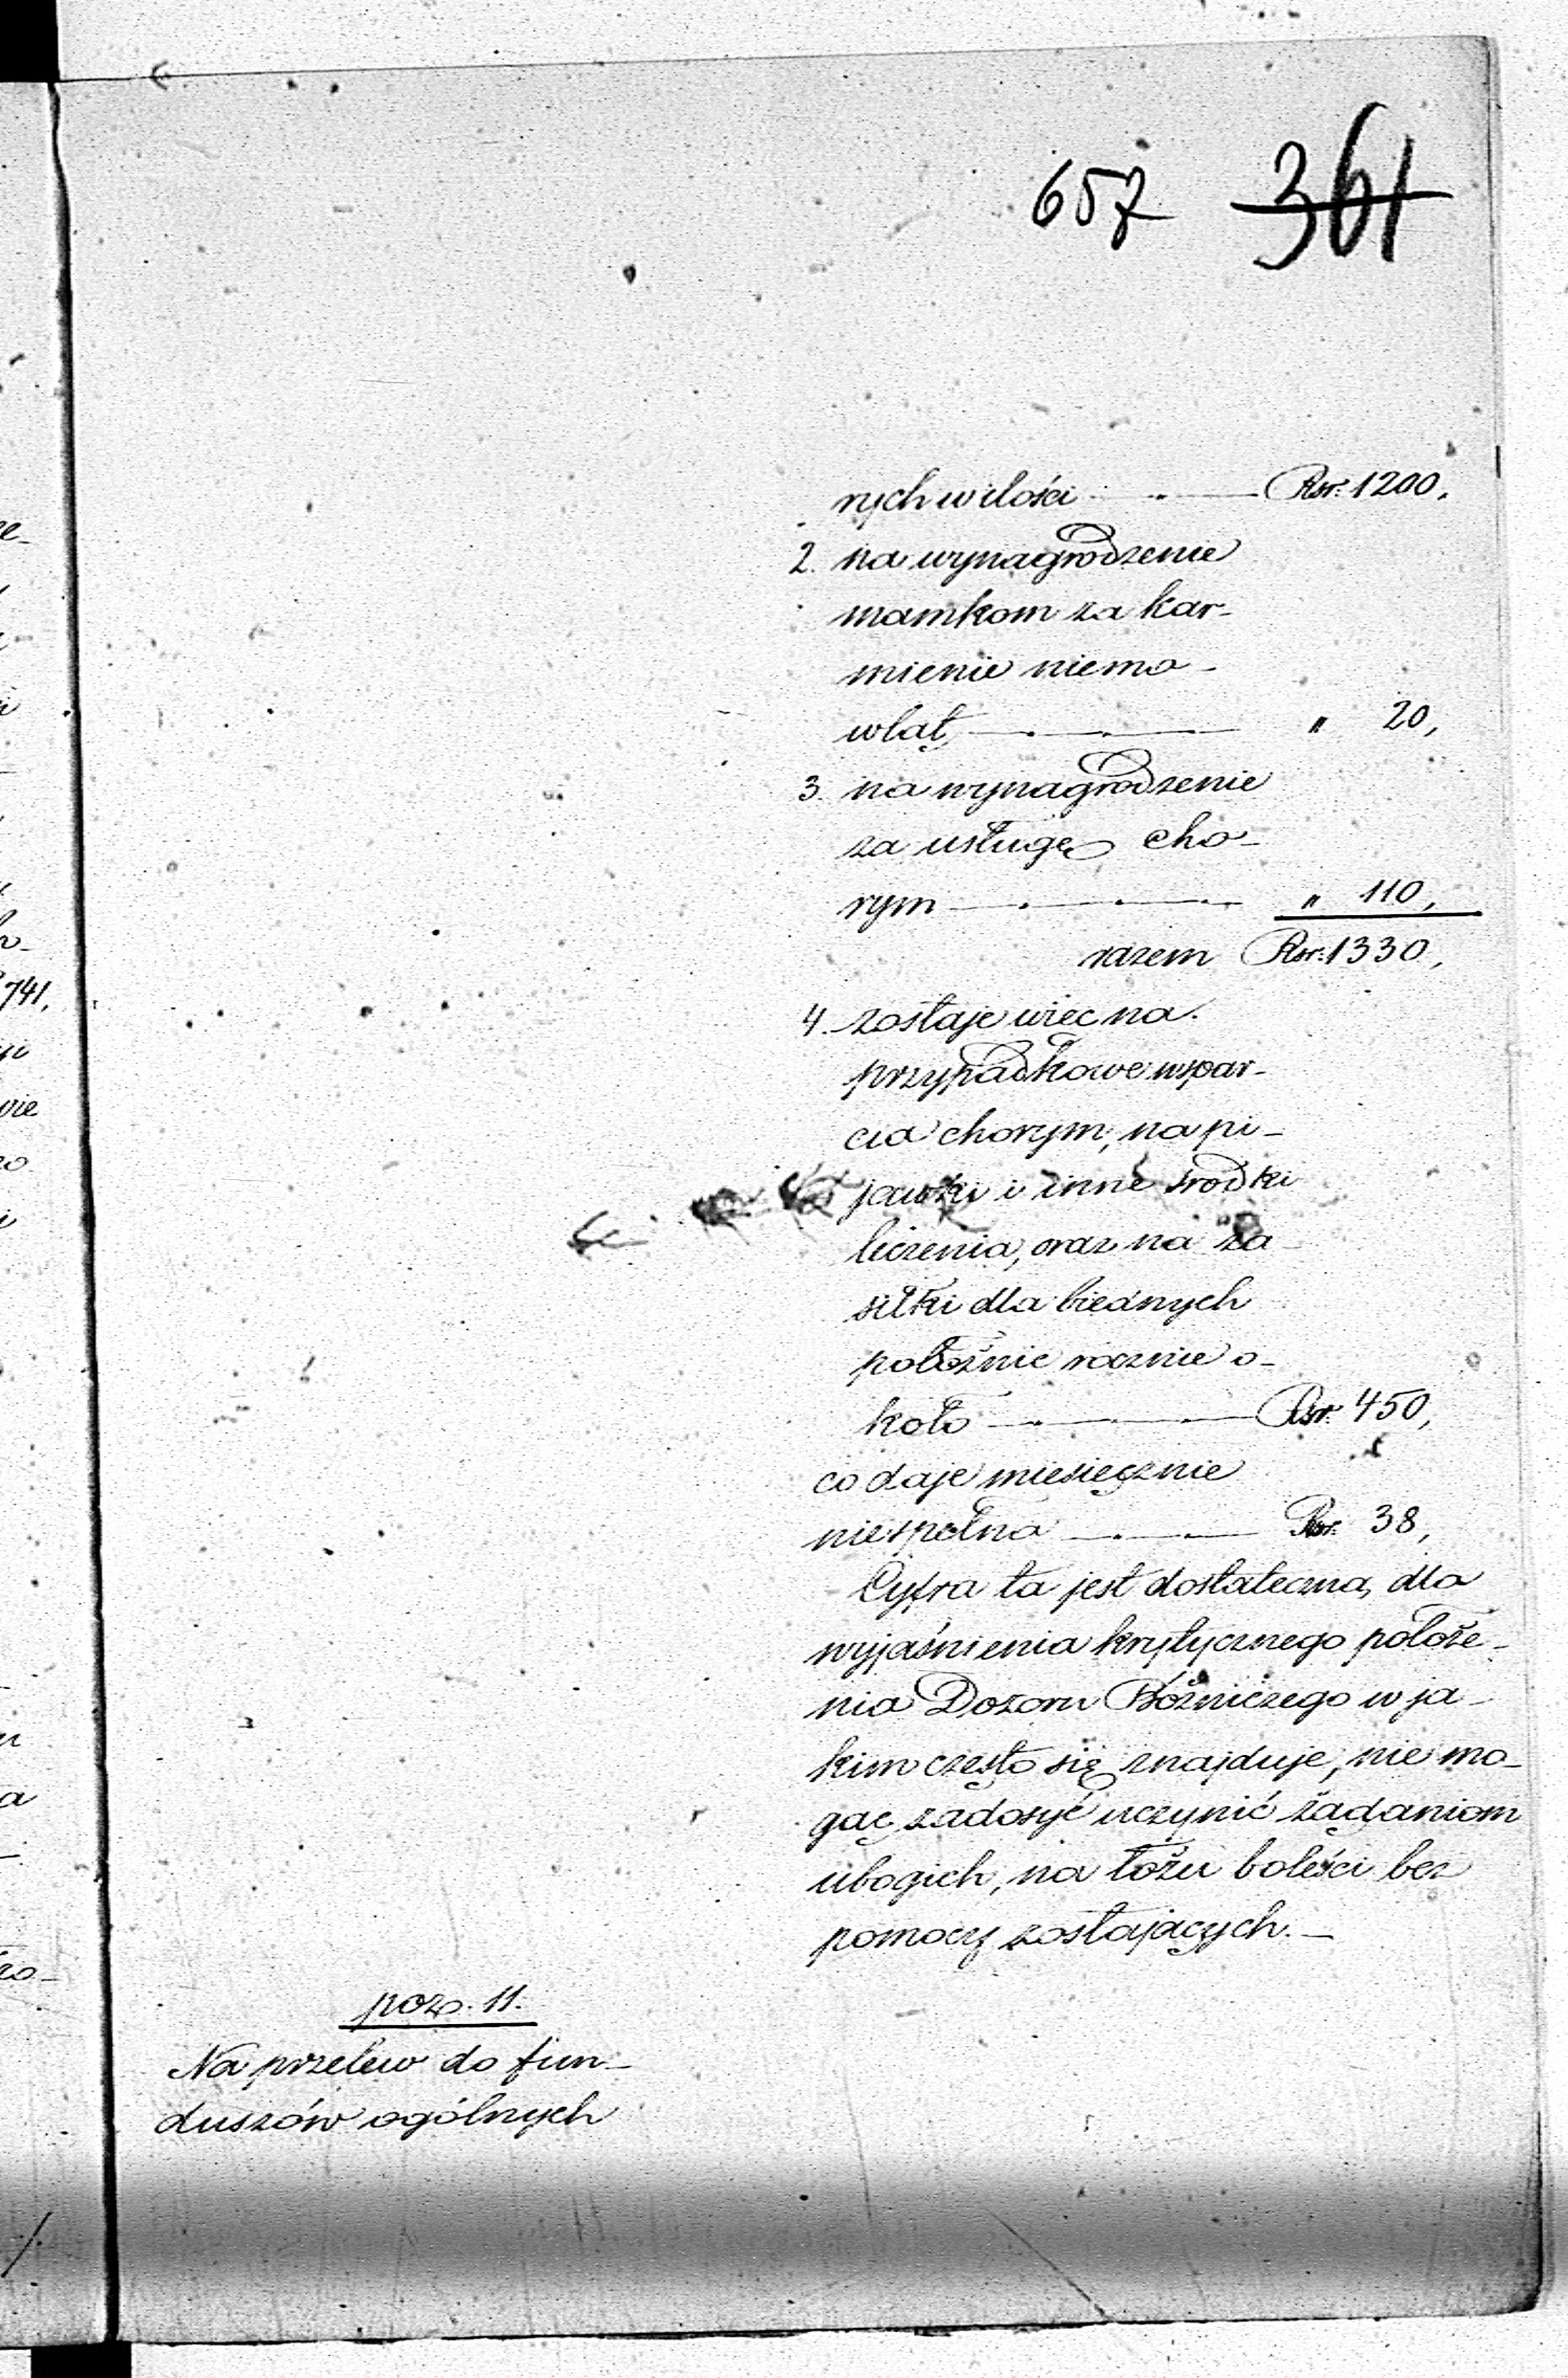 657 361
rych w ilości Rsr. 1200,
2. na wynagrodzenie
mamkom za kar-
mienie niemo-
wląt " 20,
3. na wynagrodzenie
za usługę cho-
rym " 110,
razem Rsr. 1330,
4. zostaje więc na
przypadkowe wspar-
cia chorym, na pi-
jawki i inne środki
leczenia, oraz na za-
siłki dla biednych
położnic rocznie o-
koło Rsr. 450,
co daje miesięcznie
niespełna Rsr. 38,
Cyfra ta jest dostateczną, dla
wyjaśnienia krytycznego położe-
nia Dozoru Bóżniczego w ja-
kim często się znajduje, nie mo-
gąc zadosyć uczynić żądaniom
ubogich, na łożu boleści bez
pomocy zostających.—
poz. 11.
Na przelew do fun-
duszów ogólnych
741,